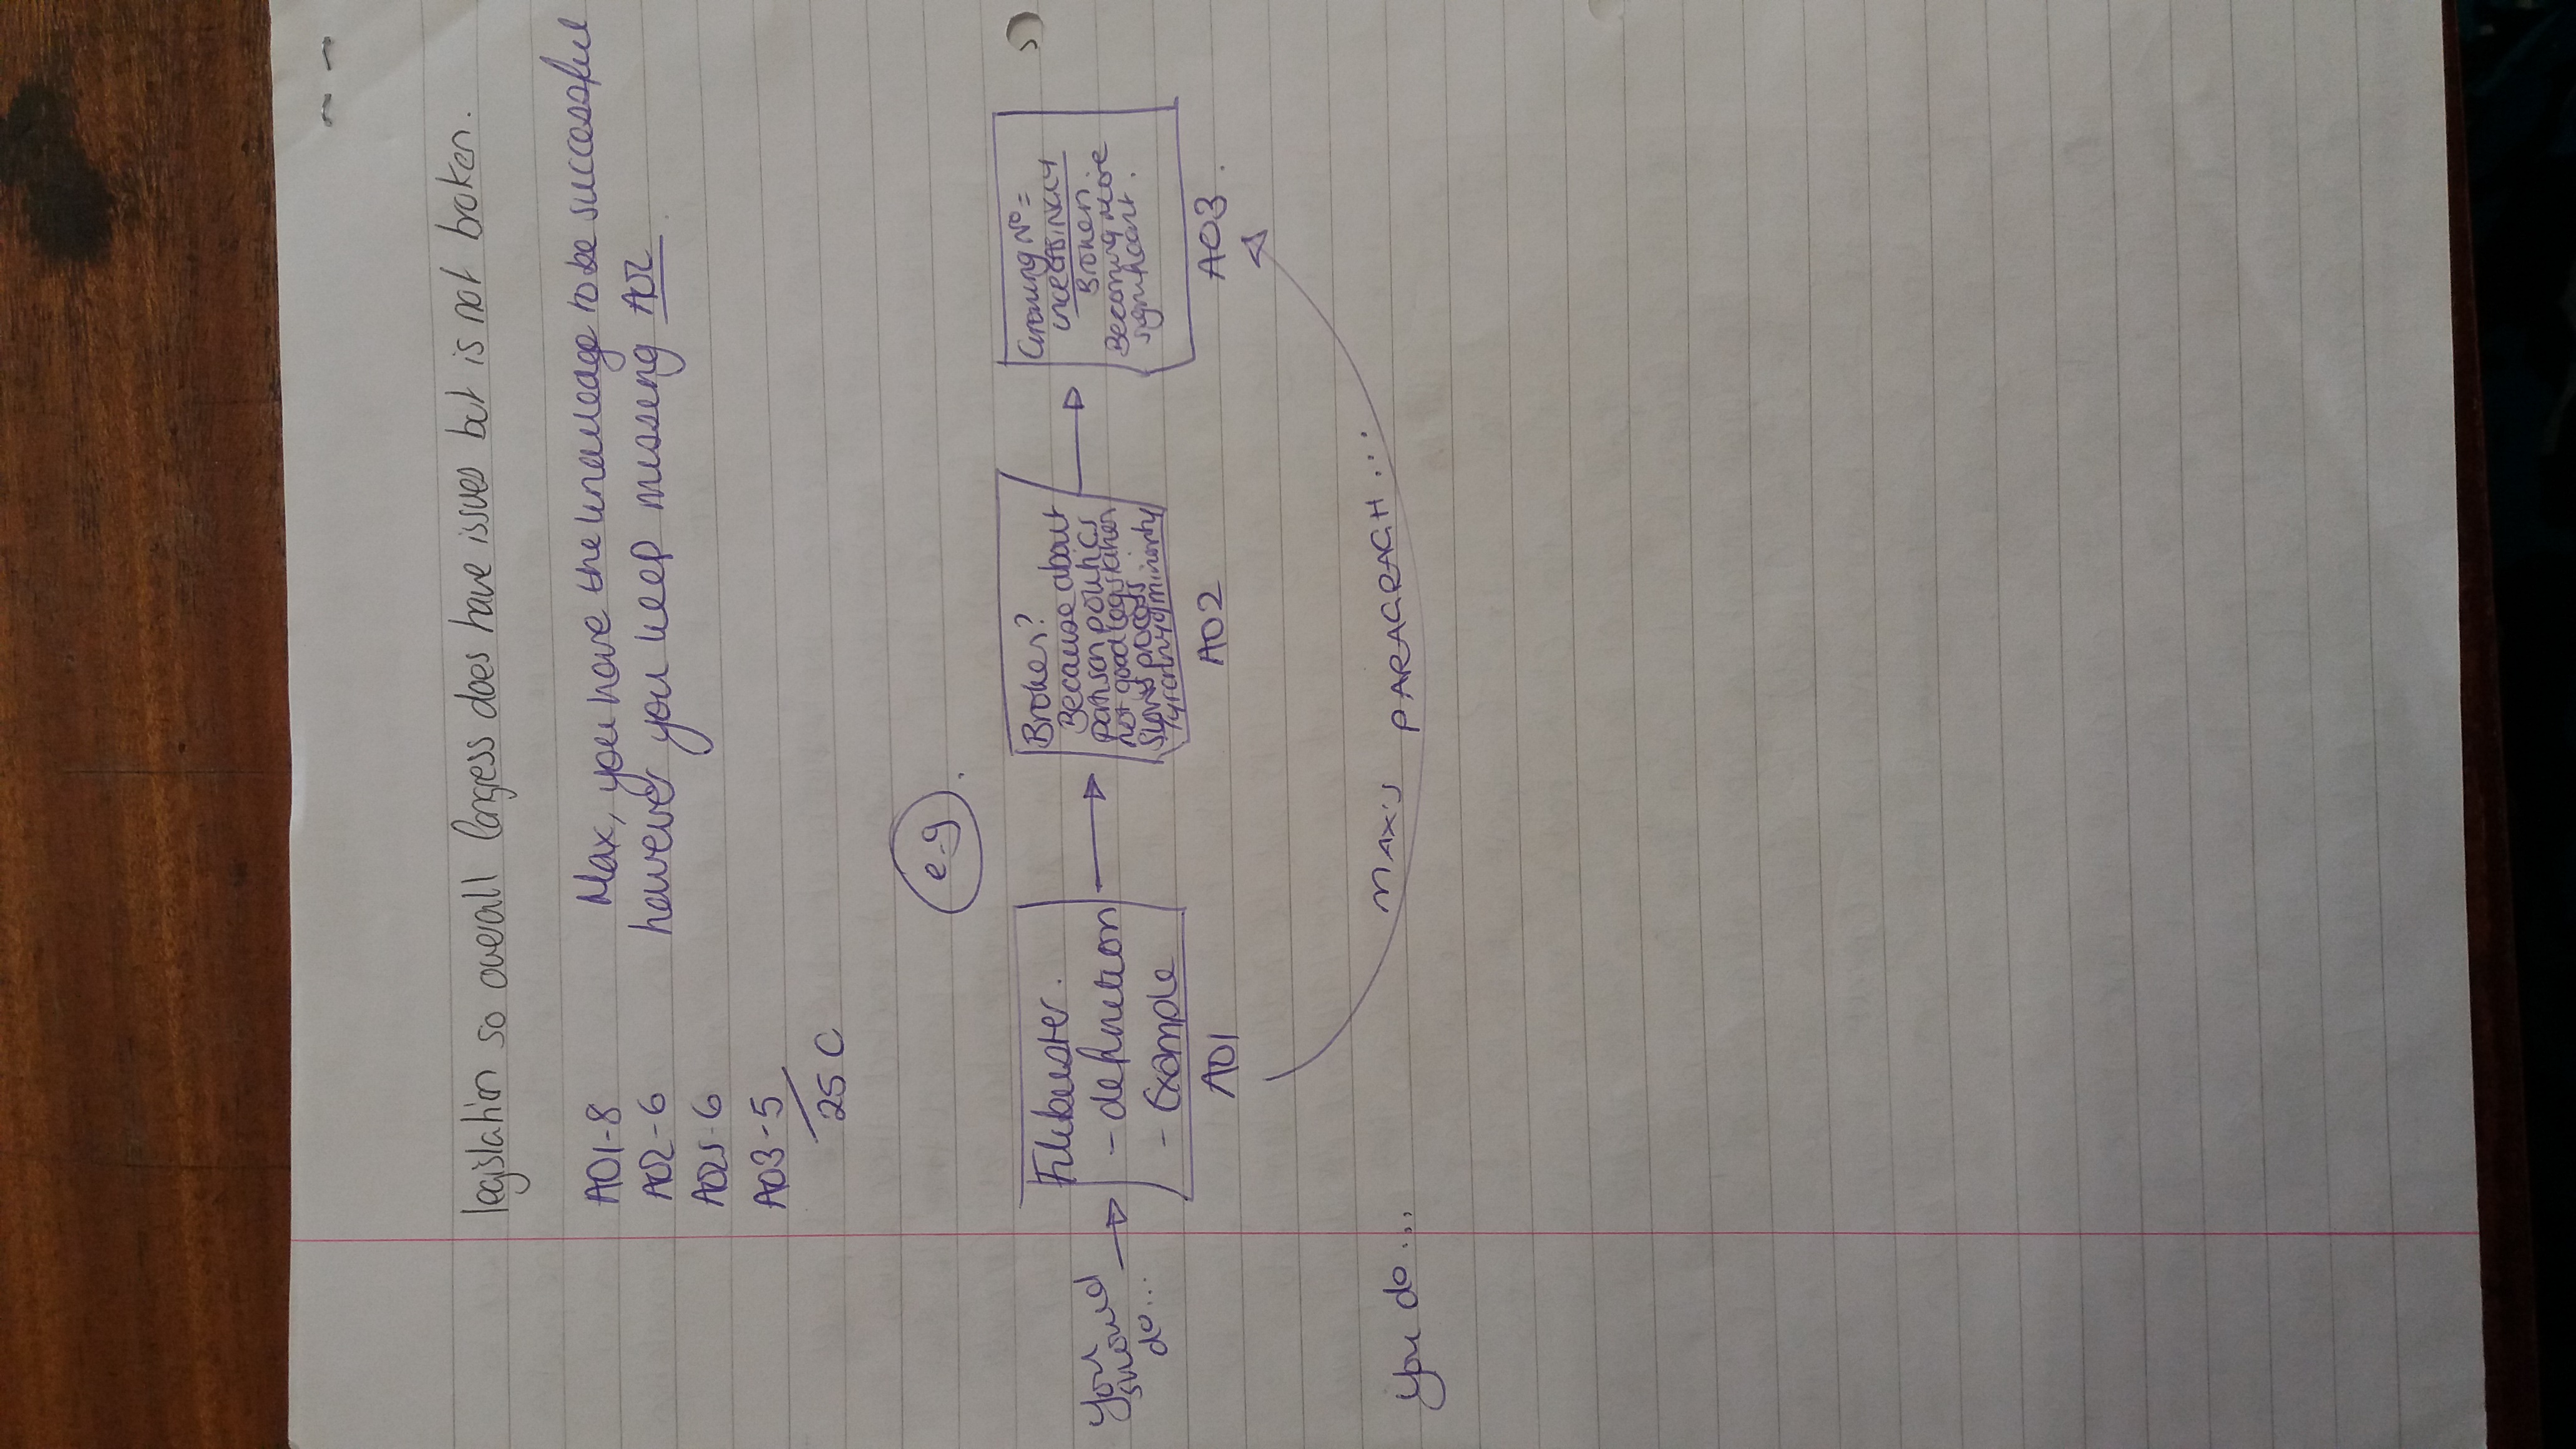 legislation so overall Congress does have issues but is not broken.
AO1-8
AO2-6
AO2s-6
AO3-5
25 C
Max, you have the knowledge to be successful
however you keep missing AO2
e.g.
You should do...
Filibuster.
- definition
- Example
AO1
Broken?
Because about
partisan politics
not good legislation
Slows process
Tyranny of minority
AO2
Growing No =
increasingly
Broken.
Becoming more
significant.
AO3.
You do...
MAX'S PARAGRAGH...